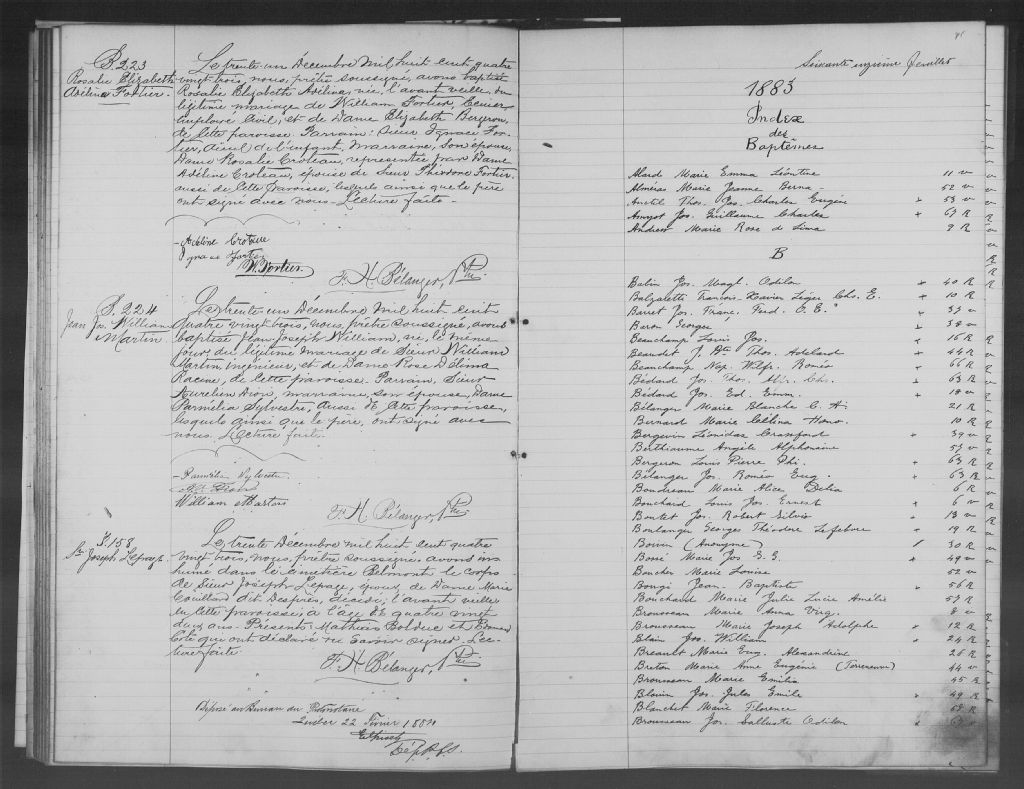 B. 223
Rosalie Elizabeth
Adélina Fortier.
Le trente un Décembre mil huit cent quatre
vingt trois, nous, prêtre soussigné, avons baptisé
Rosalie Elizabeth Adélina, née, l'avant veille, du
légitime mariage de William Fortier,
employé Civil, et de Dame Elizabeth Bergeron,
de cette paroisse. Parrain: Sieur Ignace For-
tier, aieul de l'enfant, Marraine, son épouse,
Dame Rosalie Croteau, représentée par Dame
Adéline Croteau, épouse de Sieur Théodore Fortier
aussi de cette paroisse, lesquels ainsi que le père
ont signé avec nous - Lecture faite -
Adéline Croteau
Ignace Fortier
W. Fortier.
F. H. Bélanger, Ptre
B. 224
Jean Jos. William
Martin.
Le trente un Décembre mil huit cent
quatre vingt trois, nous, prêtre soussigné, avons
baptisé Jean Joseph William, né, le même
jour, du légitime mariage de Sieur William
Martin, ingénieur, et de Dame Rose Délima
Racine, de cette paroisse. Parrain, Sieur
Aurélien Dion, marraine, son épouse, Dame
Parmélia Sylvestre, aussi de cette paroisse,
lesquels ainsi que le père, ont signé avec
nous. Lecture faite.
Parmélia Sylvestre
William Martin
F. H. Bélanger, Ptre
S. 158
Sr Joseph Lepage.
Le trente Décembre mil huit cent quatre
vingt trois, nous, prêtre soussigné, avons in-
humé dans le Cimetière Belmont le corps
de Sieur Joseph Lepage, époux de Dame Marie
Couillard dit Després, décédé, l'avant veille
en cette paroisse, à l'âge de quatre vingt
deux ans - Présents: Mathias Bolduc et
Coté qui ont déclaré ne savoir signer. Lec-
ture faite.
F. H. Bélanger, Ptre
Déposé au Bureau du Protonotaire
Québec 22 Février 1884
Soixante onzième feuillet
1883
Index
des
Baptêmes
Alard Marie Emma Léontine 11 v
Alméras Marie Jeanne Berna - 52 v
Anctil Thos. Jos. Charles Eugène + 53 v
Amyot Jos. Guillaume Charles + 67 R
Andrews Marie Rose de Lima 9 R
B
Babin Jos. Magl. Odilon + 40 R
Balzaretti Francois-Xavier Léger Chs. E. + 10 R
Barret Jos. Franc. Ferd. O. E. + 37 v
Baron Georges + 38 v
Beauchamp Louis Jos. + 16 R
Beaudet J. Bte Thos. Adelard + 44 R
Beauchamp Nap. Wilfr. Roméo + 66 R
Bédard Jos. Thos. Chs. + 63 R
Bédard Jos. Ed. Emm. + 18 v
Bélanger Marie Blanche C. A. 21 R
Bernard Marie Célina Hono. 10 R
Bergevin Léonidas Cranford + 39 v
Berthiaume Angèle Alphonsine 57 v
Bergeron Louis Pierre Phi. + 63 R
Bélanger Jos. Roméo Eug. + 63 R
Boudreau Marie Alice Délia 6 R
Bouchard Louis Jos. Ernest + 6 v
Boutet Jos. Robert Silvio + 13 v
Boulanger Georges Théodore Lefebvre + 19 R
Boivin (Anonyme) / 30 R
Bossé Marie Jos E. E. + 49 v
Boucher Marie Louise 52 v
Bougi Jean Baptiste + 56 R
Bouchard Marie Julie Lucie Amélie 57 R
Brousseau Marie Anna Virg. 8 v
Brousseau Marie Joseph Adolphe + 12 R
Blain Jos. William + 24 R
Breault Marie Eug. Alexandrine 26 R
Breton Marie Anne Eugénie 44 v
Brousseau Marie Emilia 45 R
Blouin Jos. Jules Emile + 49 R
Blanchet Marie Florence 59 R
Brousseau Jos. Salluste Odilon + 67 v